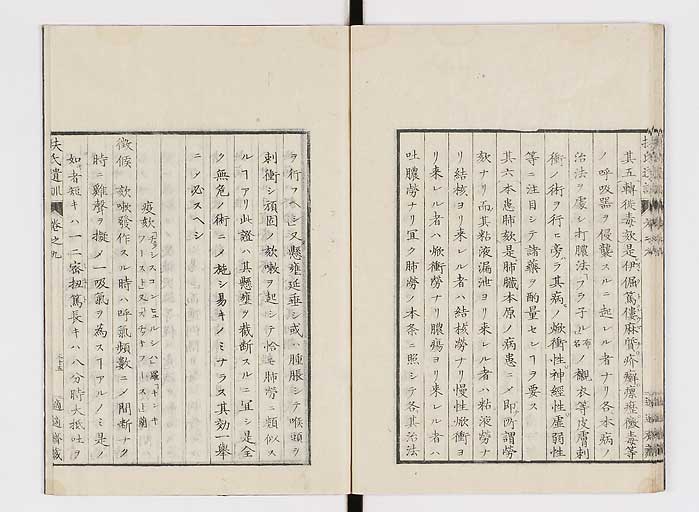 其五轉徙毒欬是伊偏篤僂麻質疥癬瘰癧黴毒等
ノ呼吸器ヲ侵襲スルニ起レル者ナリ各本病ノ
治法ヲ處シ打膿法フラ子ル布ノ名ノ襯衣等皮膚刺
衝ノ術ヲ行ヒ旁ラ其病ノ焮衝性神經性虛弱性
等ニ注目シテ諸藥ヲ酌量センヿヲ要ス
其六本患肺欬是肺臟本原ノ病患ニメ即所謂勞
欬ナリ而其粘液漏泄ヨリ来レル者ハ粘液勞ナ
リ結核ヨリ来レル者ハ結核勞ナリ慢性焮衝ヨ
リ来レル者ハ焮衝勞ナリ膿瘍ヨリ来レル者ハ
吐膿勞ナリ宜ク肺勞ノ本条ニ照シテ各其治法
ヲ行フヘシ又懸雍延垂シ或ハ腫脹シテ喉頭ヲ
刺衝シ頑固ノ欬嗽ヲ起シテ恰モ肺勞ニ類似ス
ルヿアリ此證ハ其懸雍ヲ截斷スルニ宜シ是全
ク無危ノ術ニメ施シ易キノミナラス其効一舉
ニメ必スヘシ
疫欬
徴候 欬嗽發作スル時ハ呼氣頻數ニメ間斷ナク
時ニ雞聲ヲ擬メ一吸氣ヲ為スヿアルノミ是ノ
如キ者短キハ一二密扭篤長キハ八分時大抵吐ヲ
扶氏遺訓 卷之九
適適齋藏